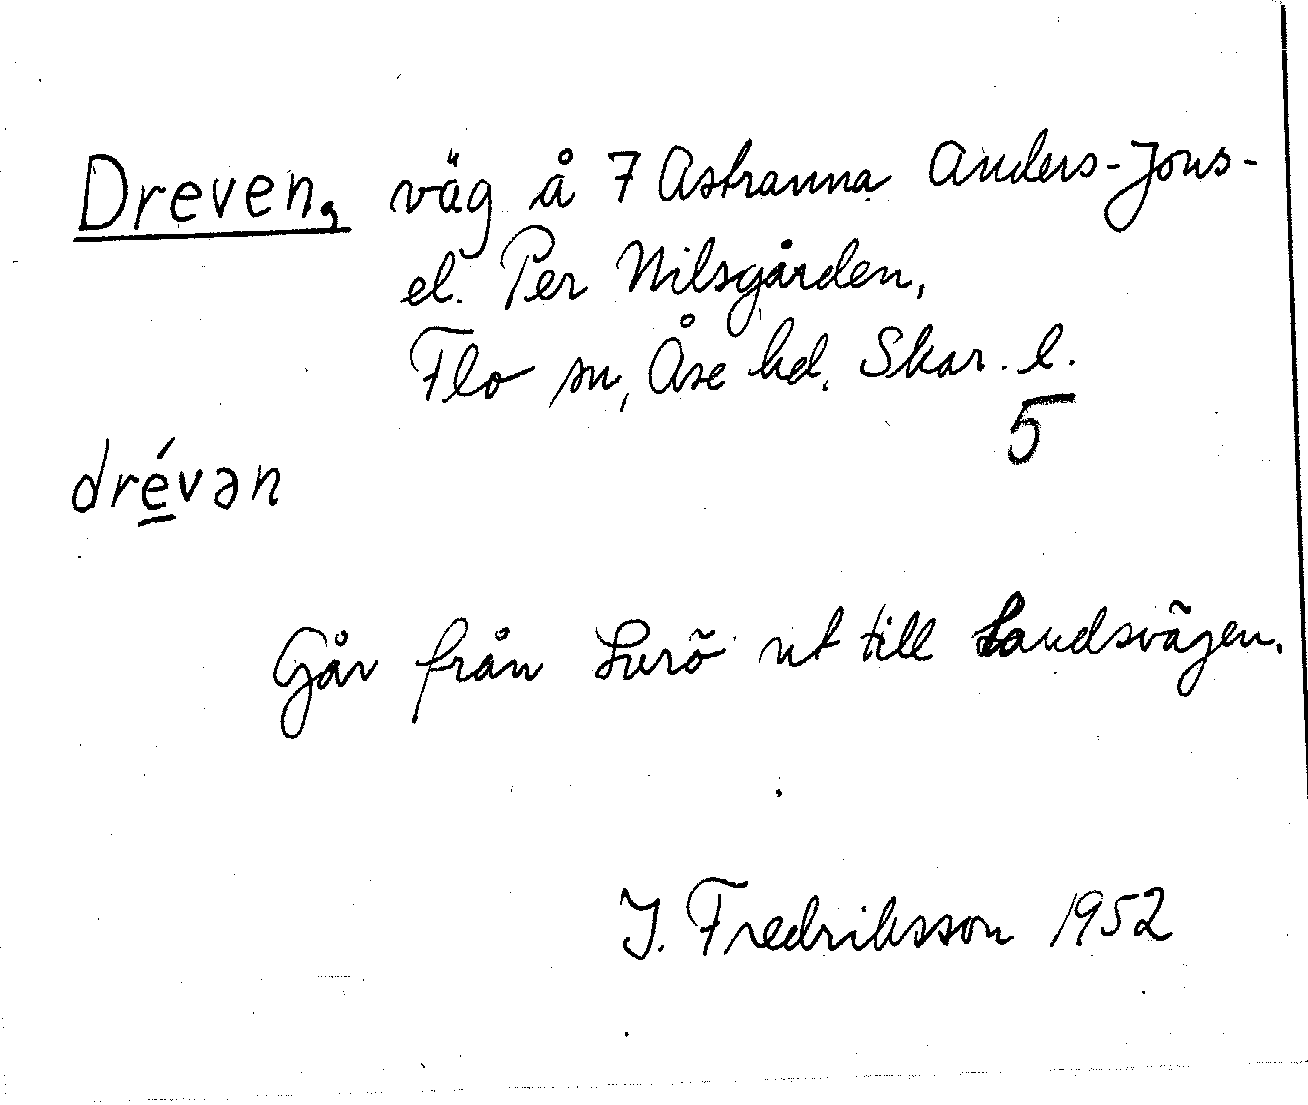 Dreven, väg å 7 Astranna Anders-Jons-
el. Per Nilsgården,
Flo sn, Åse hd. Skar. l.
5
drévən
Går från Lurö ut till Landsvägen.
J. Fredriksson 1952